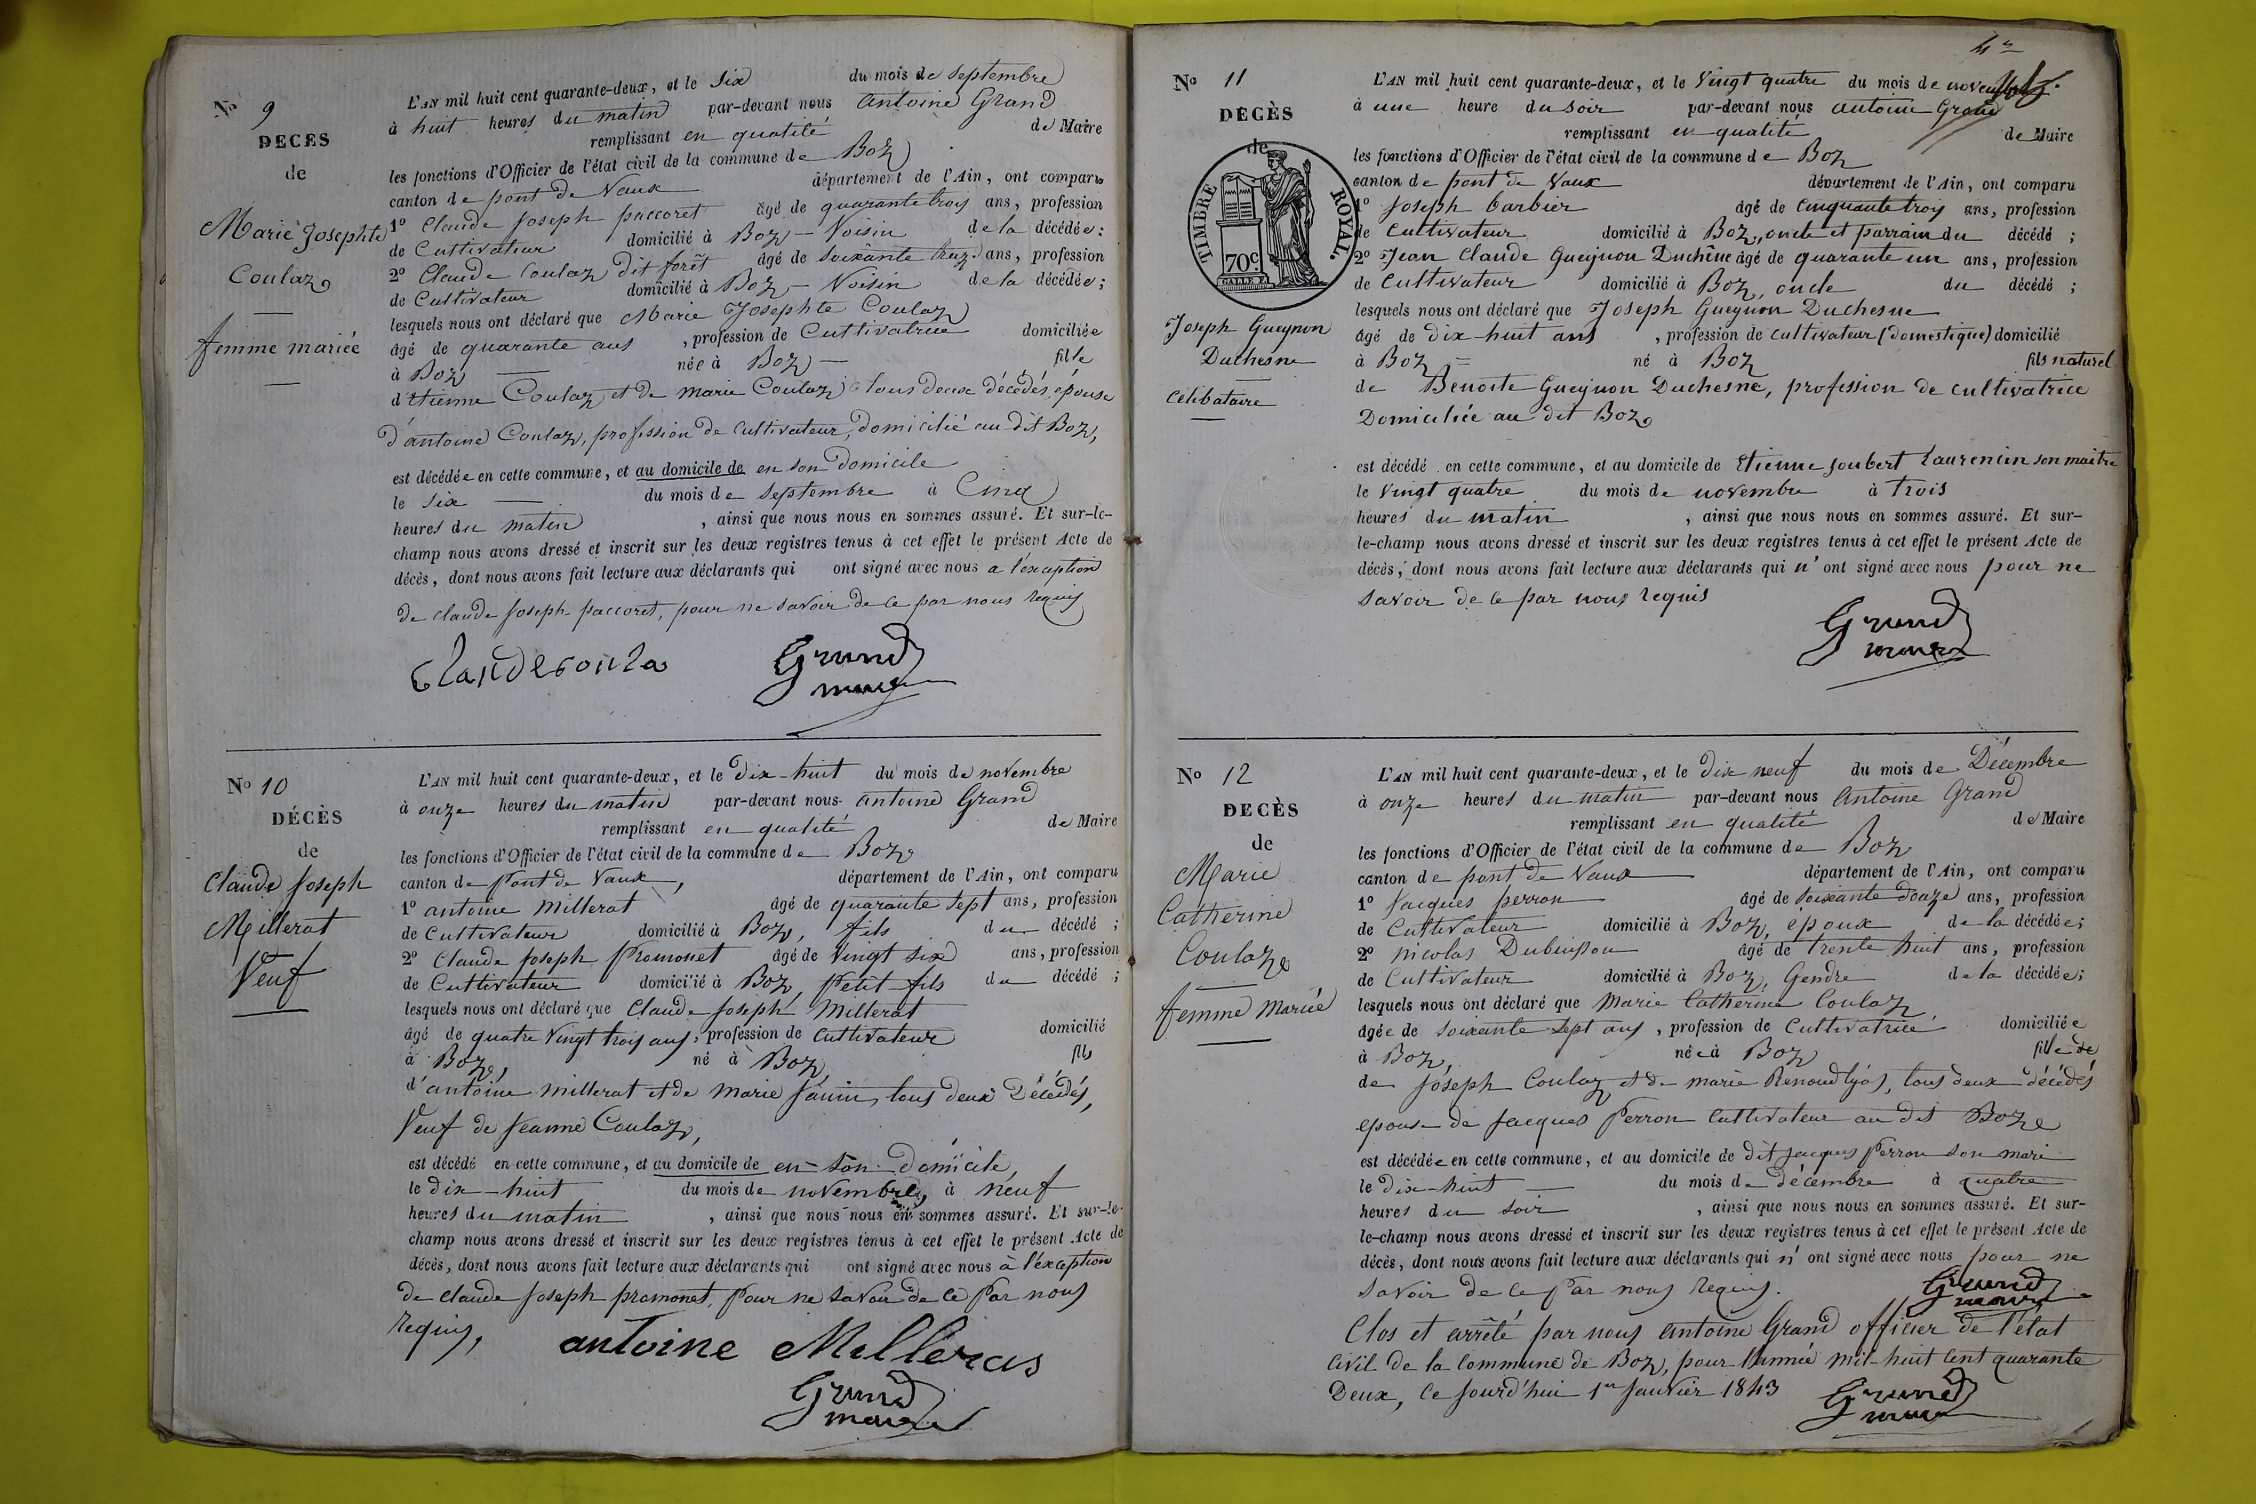 N.o 9
DÉCÈS
de
Marie Josephte
Coulaz
femme mariée
L'AN mil huit cent quarante-deux, et le six du mois de septembre
à huit heures du matin par-devant nous antoine Grand
remplissant en qualité de Maire
les fonctions d'Officier de l'état civil de la commune de Boz
canton de pont de Vaux département de l'Ain, ont comparu
1º Claude Joseph paccoret âgé de quarante trois ans, profession
de Cultivateur domicilié à Boz – Voisin de la décédée;
2º Claude Coulaz dit forêt âgé de soixante treize ans, profession
de Cultivateur domicilié à Boz – Voisin de la décédée;
lesquels nous ont déclaré que Marie Josephte Coulaz
âgé de quarante ans , profession de Cultivatrice domiciliée
à Boz — née à Boz — fille
d'Etienne Coulaz et de marie Coulaz tous deux décédés, épouse
d'antoine Coulaz, profession de cultivateur, domicilié au dit Boz,
est décédée en cette commune, et au domicile de en son domicile
le six — du mois de septembre à Cinq
heures du matin , ainsi que nous nous en sommes assuré. Et sur-le-
champ nous avons dressé et inscrit sur les deux registres tenus à cet effet le présent Acte de
décès, dont nous avons fait lecture aux déclarants qui ont signé avec nous à l'exception
de claude Joseph paccoret, pour ne savoir de ce par nous requis
Grand
maire
No 10
DÉCÈS
de
Claude Joseph
Millerat
Veuf
L'AN mil huit cent quarante-deux, et le dix-huit du mois de novembre
à onze heures du matin par-devant nous antoine Grand
remplissant en qualité de Maire
les fonctions d'Officier de l'état civil de la commune de Boz
canton de Pont de Vaux, département de l'Ain, ont comparu
1º antoine Millerat âgé de quarante sept ans, profession
de Cultivateur domicilié à Boz, fils du décédé ;
2º Claude Joseph Promonet âgé de Vingt six ans, profession
de Cultivateur domicilié à Boz, Petit fils du décédé ;
lesquels nous ont déclaré que Claude Joseph Millerat
âgé de quatre Vingt trois ans, profession de Cultivateur domicilié
à Boz, né à Boz, fils
d'antoine millerat et de marie Janin, tous deux Décédés,
Veuf de Jeanne Coulaz,
est décédé en cette commune, et au domicile de en son domicile,
le dix-huit du mois de novembre, à neuf
heures du matin , ainsi que nous nous en sommes assuré. Et sur-le-
champ nous avons dressé et inscrit sur les deux registres tenus à cet effet le présent Acte de
décès, dont nous avons fait lecture aux déclarants qui ont signé avec nous à l'exception
de claude Joseph promonet, Pour ne savoir de ce Par nous
requis,
antoine Milleras
Grand
maire
No 11
DÉCÈS
de
TIMBRE ROYAL
70c
Joseph Gueynon
Duchesne
célibataire
L'AN mil huit cent quarante-deux, et le Vingt quatre du mois de novembre
à une heure du soir par-devant nous antoine Grand
remplissant en qualité de Maire
les fonctions d'Officier de l'état civil de la commune de Boz
canton de pont de Vaux département de l'Ain, ont comparu
1º Joseph barbier âgé de cinquante trois ans, profession
de Cultivateur domicilié à Boz, oncle et parrain du décédé ;
2º Jean Claude Gueynon Duchêne âgé de quarante un ans, profession
de Cultivateur domicilié à Boz, oncle du décédé ;
lesquels nous ont déclaré que Joseph Gueynon Duchesne
âgé de dix-huit ans , profession de cultivateur (domestique) domicilié
à Boz = né à Boz fils naturel
de Benoite Gueynon Duchesne, profession de cultivatrice
Domiciliée au dit Boz,
est décédé en cette commune, et au domicile de Etienne Joubert Laurencin son maître
le Vingt quatre du mois de novembre à trois
heures du matin , ainsi que nous nous en sommes assuré. Et sur-
le-champ nous avons dressé et inscrit sur les deux registres tenus à cet effet le présent Acte de
décès, dont nous avons fait lecture aux déclarants qui n'ont signé avec nous pour ne
savoir de ce par nous requis
Grand
maire
No 12
DÉCÈS
de
Marie
Catherine
Coulaz
femme Mariée
L'AN mil huit cent quarante-deux, et le dix neuf du mois de Décembre
à onze heures du matin par-devant nous Antoine Grand
remplissant en qualité de Maire
les fonctions d'Officier de l'état civil de la commune de Boz
canton de pont de Vaux département de l'Ain, ont comparu
1º Jacques perron âgé de soixante douze ans, profession
de Cultivateur domicilié à Boz, époux de la décédée;
2º nicolas Dubuisson âgé de trente huit ans, profession
de Cultivateur domicilié à Boz, Gendre de la décédée;
lesquels nous ont déclaré que Marie Catherine Coulaz
âgée de soixante sept ans, profession de Cultivatrice domiciliée
à Boz, née à Boz fille de
de Joseph Coulaz et de marie tous deux décédés
epouse de Jacques Perron Cultivateur au dit Boz
est décédée en cette commune, et au domicile de dit Jacques Perron son mari
le Dix-huit — du mois de décembre à quatre
heures du soir , ainsi que nous nous en sommes assuré. Et sur-
le-champ nous avons dressé et inscrit sur les deux registres tenus à cet effet le présent Acte de
décès, dont nous avons fait lecture aux déclarants qui n'ont signé avec nous pour ne
savoir de ce Par nous requis.
Grand
maire
Clos et arrêté par nous antoine Grand officier de l'état
Civil de la Commune de Boz, pour l'année mil-huit cent quarante
Deux, Ce Jourd'hui 1er Janvier 1843
Grand
maire